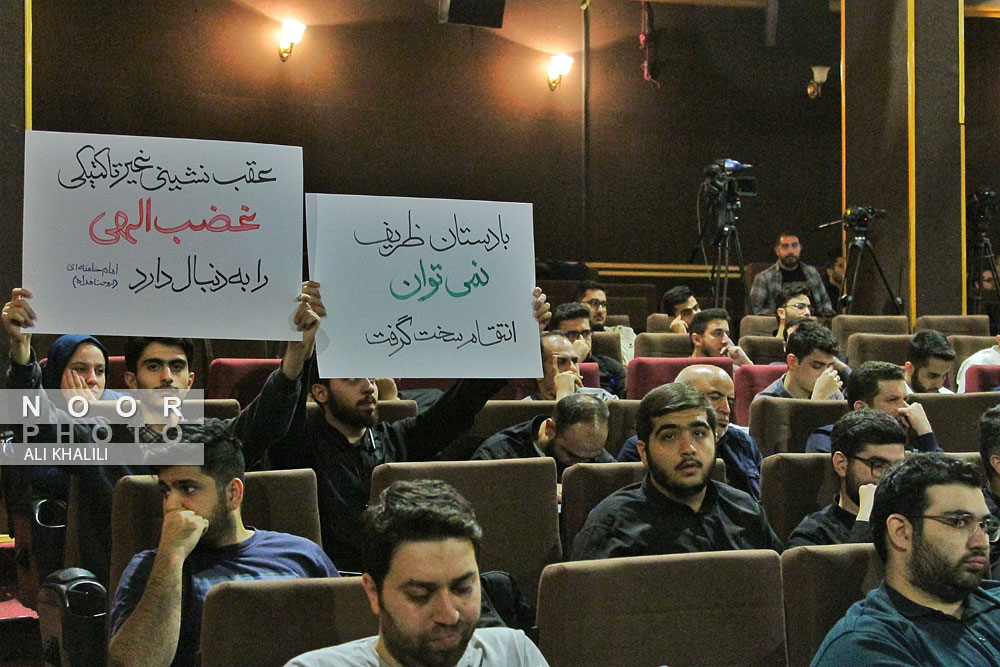 عقب نشینی غیرتاکتیکی
غضب الهی
را به دنبال دارد
امام خامنه‌ای
بادستان ظریف
نمی‌توان
انتقام سخت گرفت
NOOR
PHOTO
ALI KHALILI